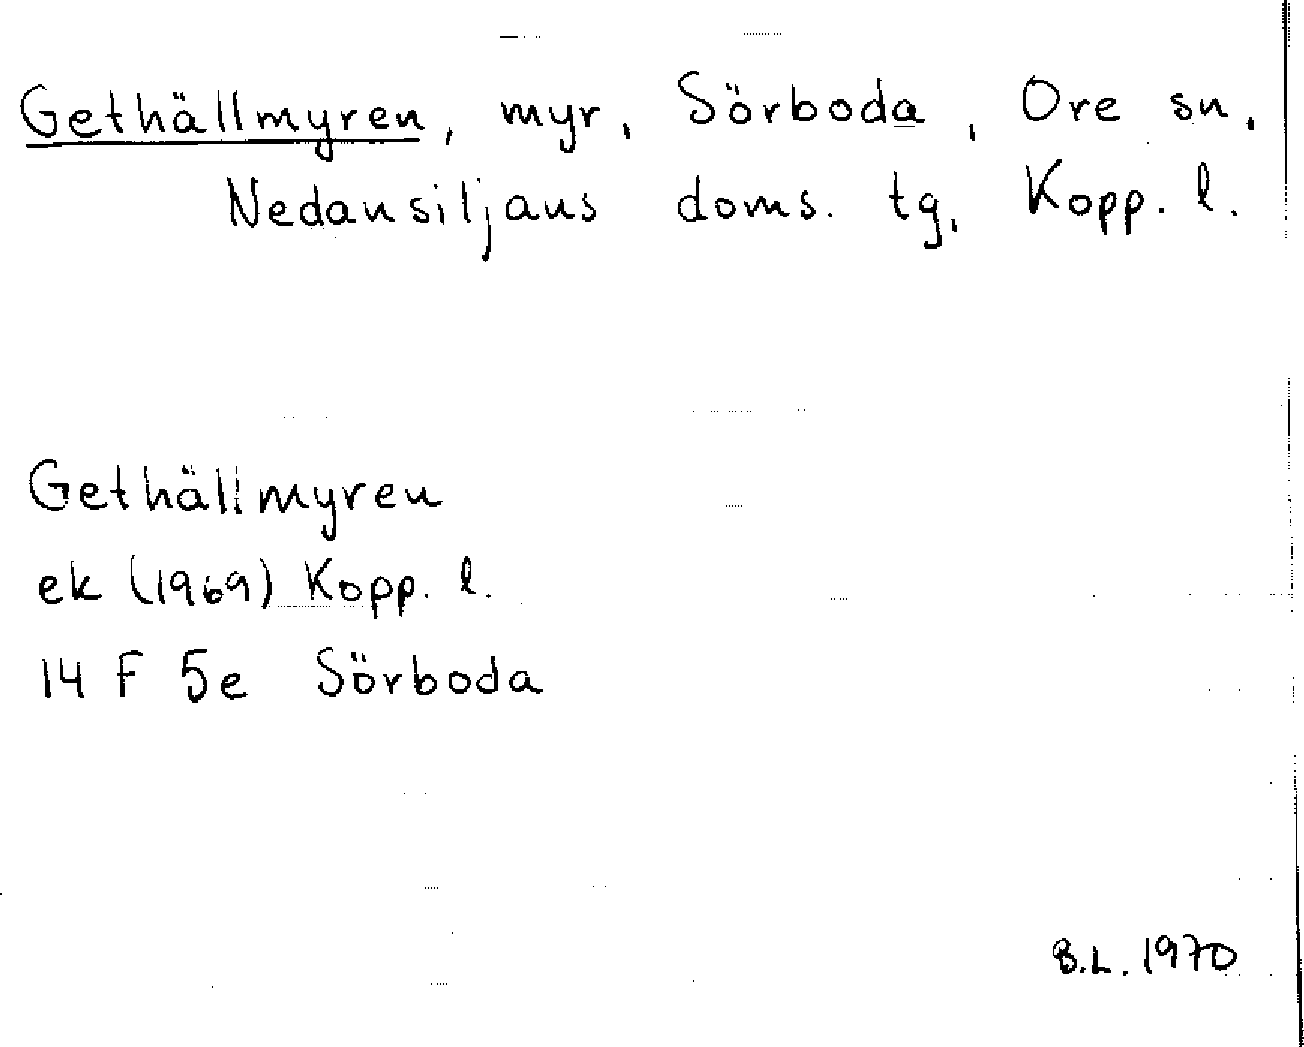 Gethällmyren, myr, Sörboda, Ore sn,
Nedansiljans doms. tg, Kopp. l.
Gethällmyren
ek (1969) Kopp. l.
14 F 5e Sörboda
B.L. 1970